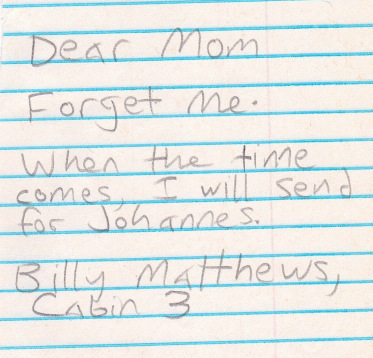 Dear Mom
Forget Me.
When the time
comes, I will send
for Johannes.
Billy Matthews,
Cabin 3